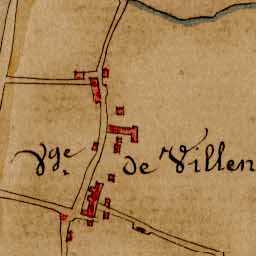 Vge. de Villen